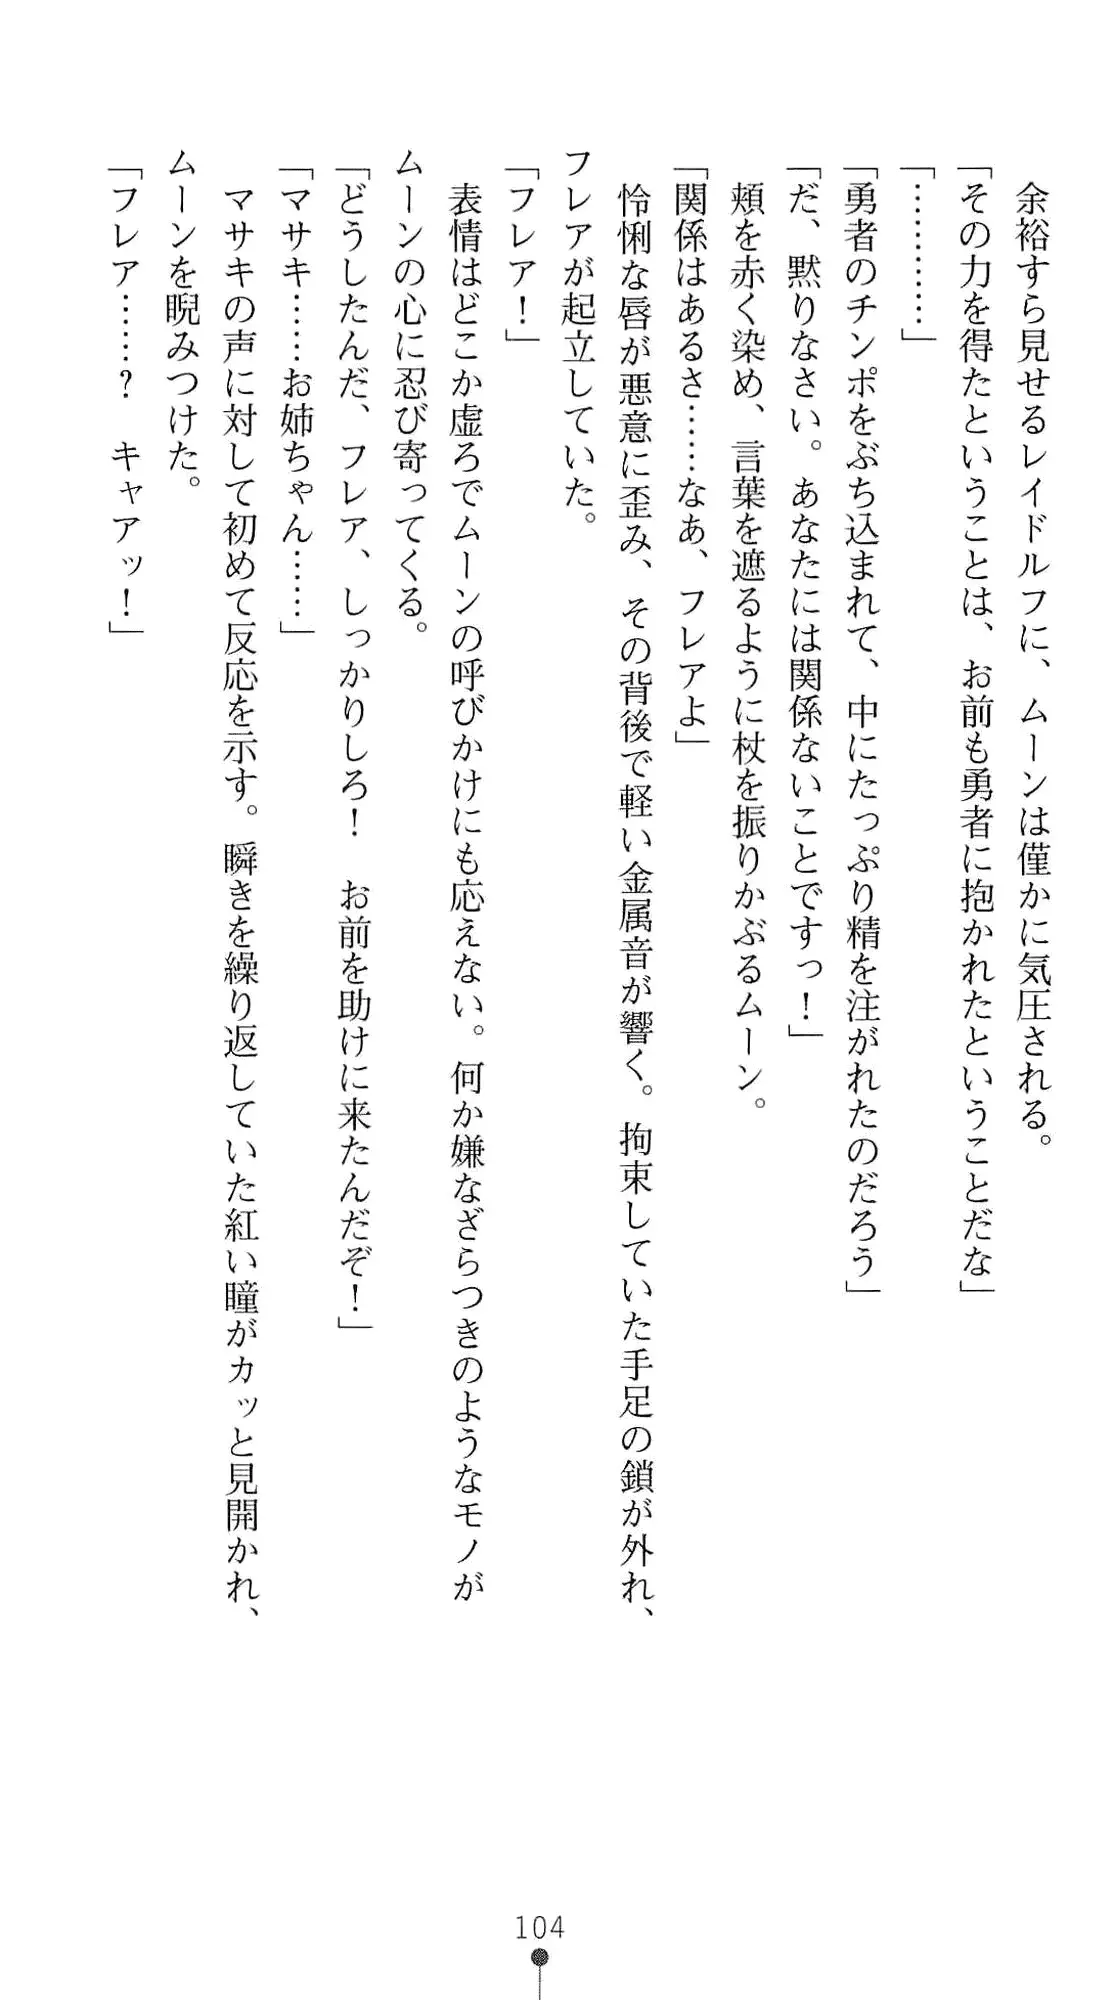 余裕すら見せるレイドルフに、ムーンは僅かに気圧される。
「その力を得たということは、お前も勇者に抱かれたということだな」
「…………」
「勇者のチンポをぶち込まれて、中にたっぷり精を注がれたのだろう」
「だ、黙りなさい。あなたには関係ないことですっ！」
頬を赤く染め、言葉を遮るように杖を振りかぶるムーン。
「関係はあるさ……なあ、フレアよ」
怜悧な唇が悪意に歪み、その背後で軽い金属音が響く。拘束していた手足の鎖が外れ、
フレアが起立していた。
「フレア！」
表情はどこか虚ろでムーンの呼びかけにも応えない。何か嫌なざらつきのようなモノが
ムーンの心に忍び寄ってくる。
「どうしたんだ、フレア、しっかりしろ！　お前を助けに来たんだぞ！」
「マサキ……お姉ちゃん……」
マサキの声に対して初めて反応を示す。瞬きを繰り返していた紅い瞳がカッと見開かれ、
ムーンを睨みつけた。
「フレア……？　キャアッ！」
104